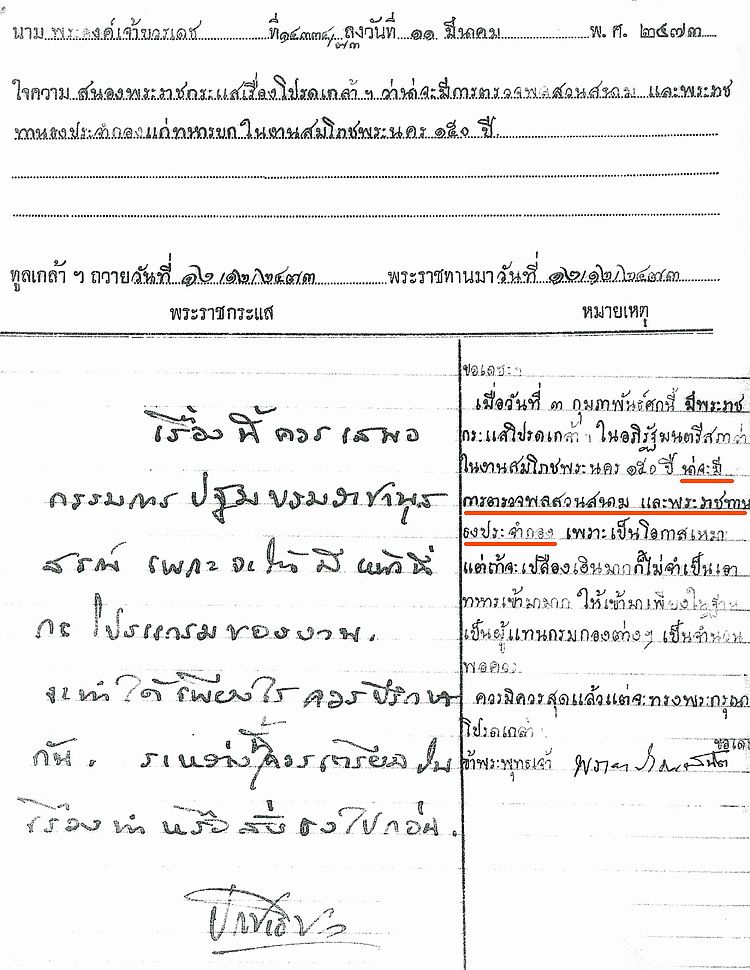 นาม พระองค์เจ้าบวรเดช ที่ ๑๔๓๓๔/๗๓ ลงวันที่ ๑๑ มีนาคม พ.ศ. ๒๔๗๓
ใจความ สนองพระราชกระแสเรื่องโปรดเกล้า ฯ ว่าน่จะมีการตรวจพลสวนสนาม และพระราช
ทานธงประจำกองแก่ทหารบก ในงานสมโภชพระนคร ๑๕๐ ปี.
ทูลเกล้า ฯ ถวายวันที่ ๑๒/๑๒/๒๔๗๓ พระราชทานมาวันที่ ๑๒/๑๒/๒๔๗๓
พระราชกระแส หมายเหตุ
เรื่องนี้ควรเสนอ
กรรมการปฐมบรมราชานุส
สรณ์ เพราะจะได้มีหน้าที่
กะโปรแกรมของงาน.
จะทำได้เพียงไร ควรปรึกษา
กัน. ระหว่างนี้ควรเตรียมใน
เรื่องทำหรือสั่งธงไปก่อน.
ขอเดชะฯ
เมื่อวันที่ ๓ กุมภาพันธ์ศกนี้ มีพระราช
กระแสโปรดเกล้าฯ ในอภิรัฐมนตรีสภาว่า
ในงานสมโภชพระนคร ๑๕๐ ปี น่จะมี
การตรวจพลสวนสนาม และพระราชทาน
ธงประจำกอง เพราะเป็นโอกาสเหมาะ
แต่ถ้าจะเปลืองเงินมากก็ไม่จำเป็นเอา
ทหารเข้ามามาก ให้เข้ามาเพียงในฐาน
เป็นผู้แทนกรมกองต่างๆ เป็นจำนวน
พอควร
ควรมิควรสุดแล้วแต่จะทรงพระกรุณา
โปรดเกล้า
ขอเดชะ
ข้าพระพุทธเจ้า